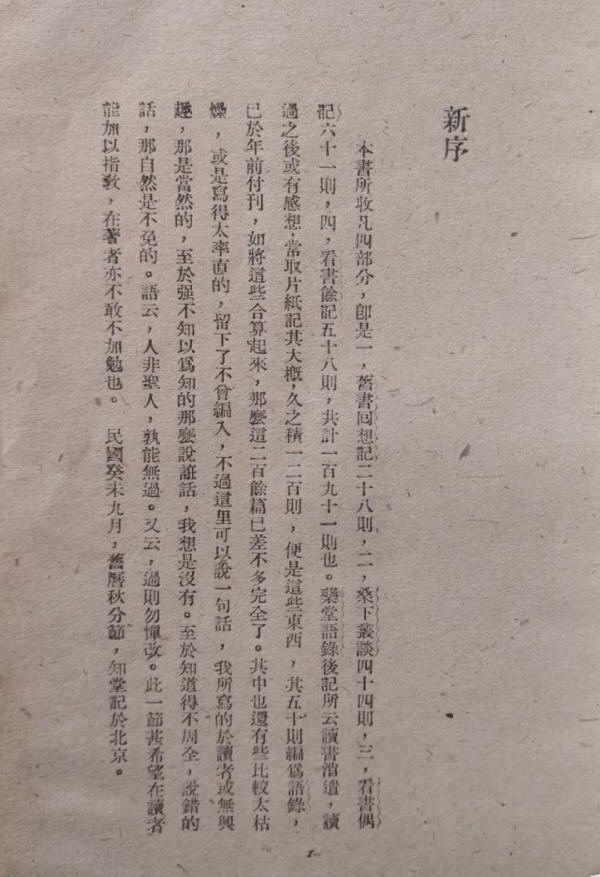 新序
本書所收凡四部分，卽是一，舊書回想記二十八則，二，桑下叢談四十四則，三，看書偶
記六十一則，四，看書餘記五十八則，共計一百九十一則也。藥堂語錄後記所云讀書消遣，讀
過之後或有感想，常取片紙記其大概，久之積一二百則，便是這些東西，其五十則編爲語錄，
已於年前付刊，如將這些合算起來，那麼這二百餘篇已差不多完全了。其中也還有些比較太枯
燥，或是寫得太率直的，留下了不曾編入，不過這里可以說一句話，我所寫的於讀者或無興
趣，那是當然的，至於强不知以爲知的那麼說誑話，我想是沒有。至於知道得不周全，說錯的
話，那自然是不免的。語云，人非聖人，孰能無過。又云，過則勿憚改。此一節甚希望在讀者
能加以指教，在著者亦不敢不加勉也。　民國癸未九月，舊曆秋分節，知堂記於北京。
1